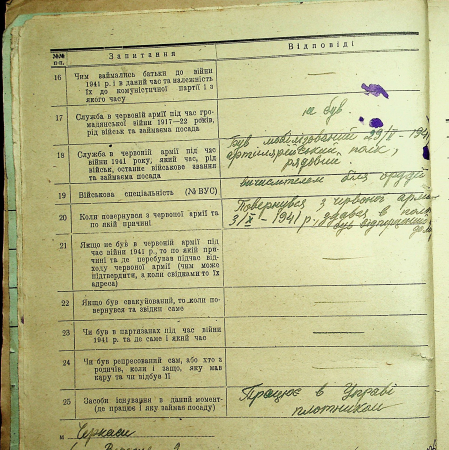 №№ п.п. Запитання Відповіді
16 Чим займались батьки до війни
1941 р. і в даний час та належність
їх до комуністичної партії і з
якого часу
17 Служба в червоній армії під час гро-
мадянської війни 1917—22 років,
рід військ та займаєма посада
не був
18 Служба в червоній армії під час
війни 1941 року, який час, рід
військ, останнє військове звання
та займаєма посада
Був мобілізований 29/ – 194
артилярійський полк,
рядовий
19 Військова спеціяльність (№ ВУС)
вичислителем біля орудій
20 Коли повернувся з червоної армії та
по якій причині
Повернувся з червоної армії
31/X – 1941 р. здався в полон
був відпущений
дом
21 Якщо не був в червоній армії під
час війни 1941 р., то по якій при-
чині та де перебував підчас від-
ходу червоної армії (чим може
підтвердити, а коли свідками то їх
адреса)
22 Якщо був евакуйований, то коли по-
вернувся та звідки саме
23 Чи був в партизанах під час війни
1941 р. та де саме і який час
24 Чи був репресований сам, або хто з
родичів, коли і защо, яку мав
кару та чи відбув її
25 Засоби існування в даний момент-
(де працює і яку займає посаду)
Працює в Управі
плотником
м Черкаси